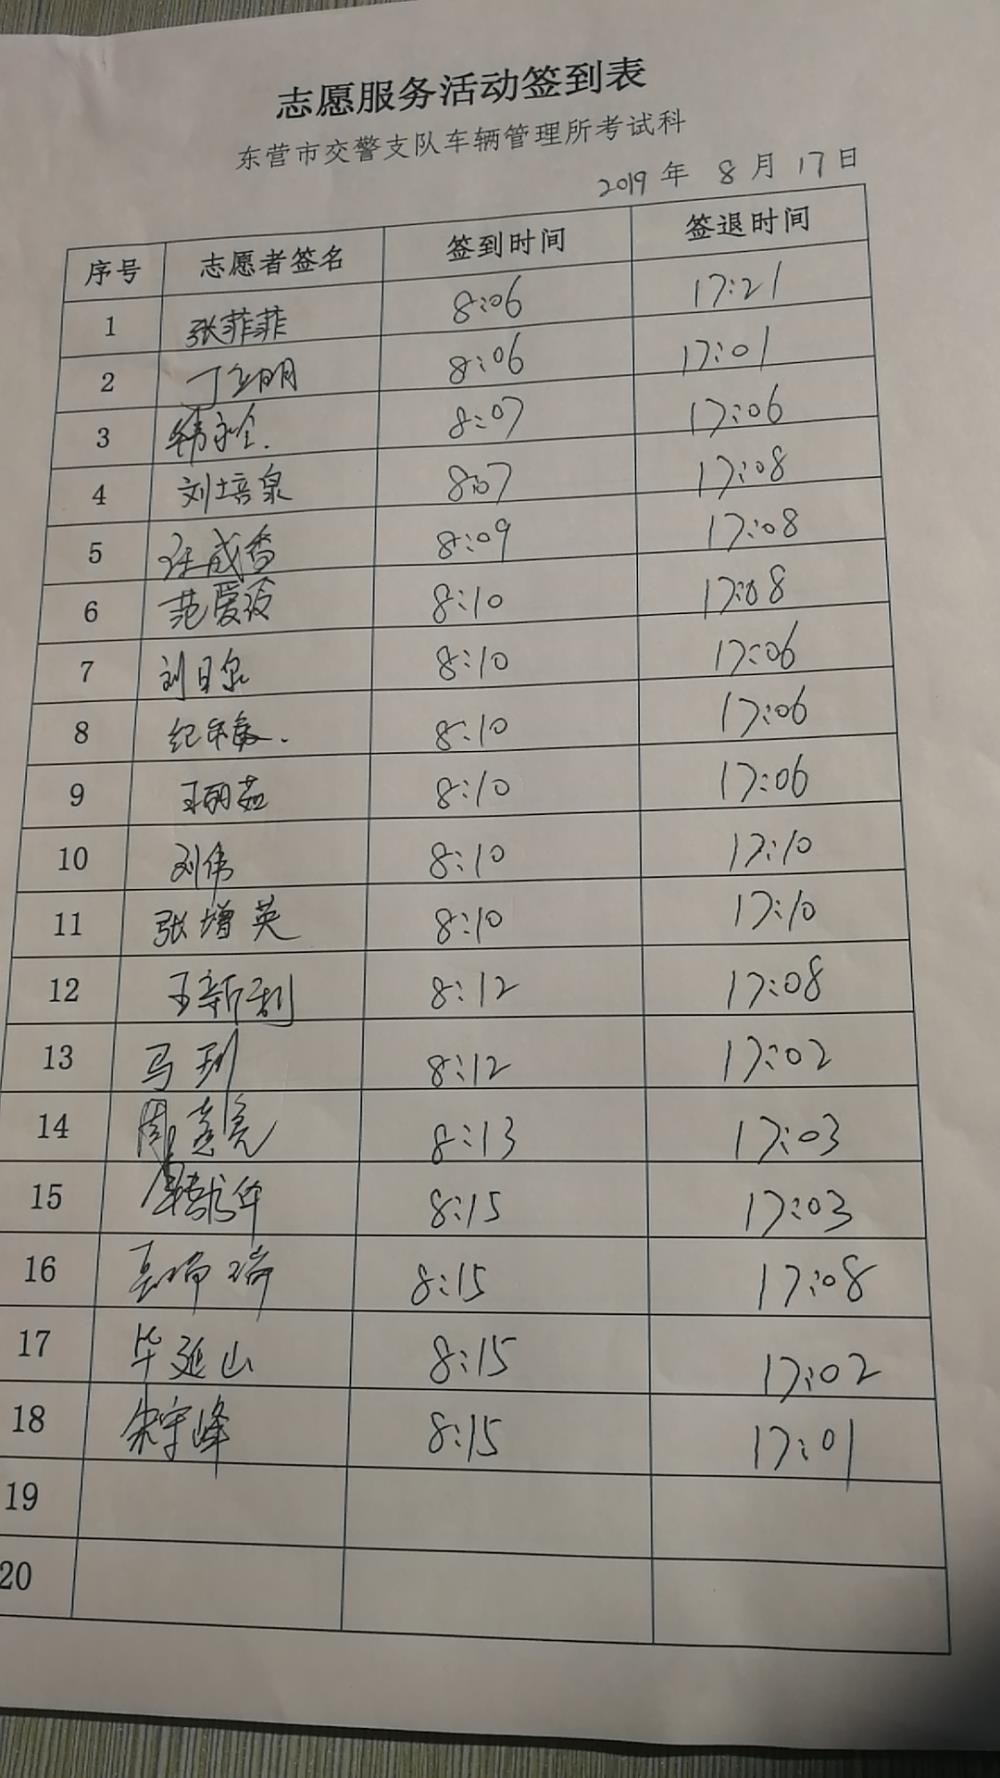 志愿服务活动签到表
东营市交警支队车辆管理所考试科
2019 年 8 月 17 日
序号 志愿者签名 签到时间 签退时间
1 张菲菲 8:06 17:21
2 丁 明 8:06 17:01
3 韩 8:07 17:06
4 刘培泉 8:07 17:08
5 成香 8:09 17:08
6 范爱玲 8:10 17:08
7 刘日泉 8:10 17:06
8 纪 8:10 17:06
9 王丽茹 8:10 17:06
10 刘伟 8:10 17:10
11 张增英 8:10 17:10
12 王新利 8:12 17:08
13 马 8:12 17:02
14 周 亮 8:13 17:03
15 华 8:15 17:03
16 8:15 17:08
17 毕延山 8:15 17:02
18 宋宇峰 8:15 17:01
19
20